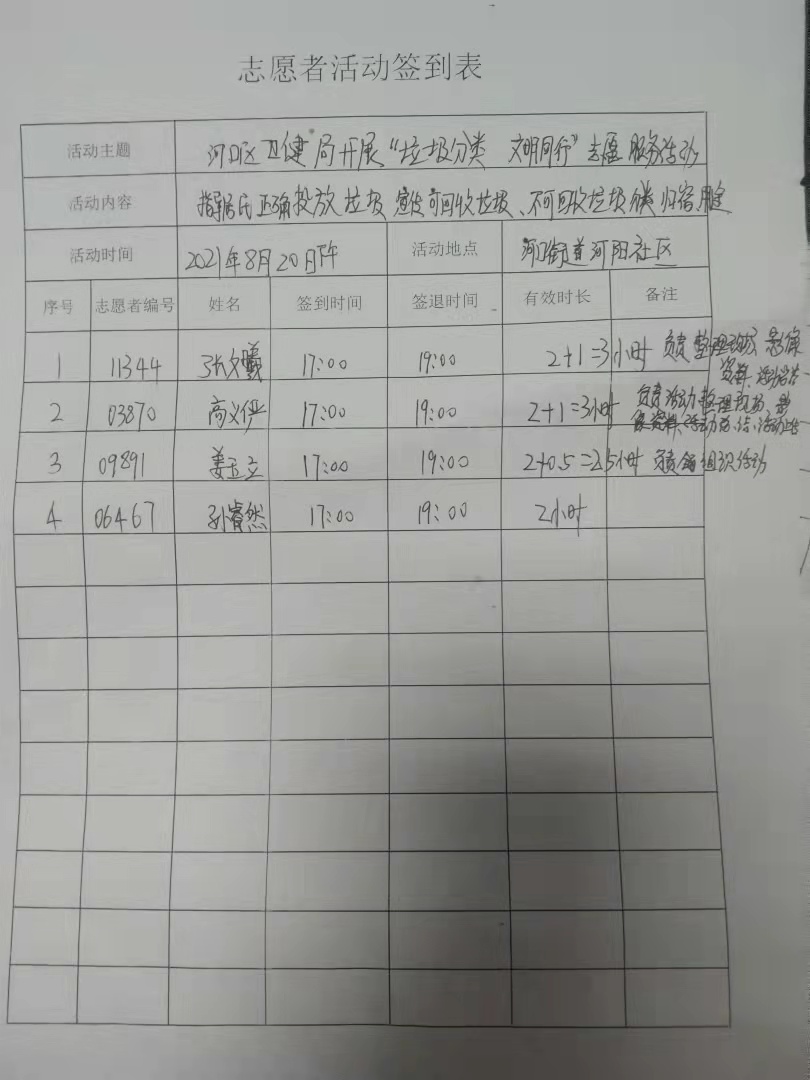 志愿者活动签到表
活动主题 河口区卫健局开展“垃圾分类 文明同行”志愿服务活动
活动内容 指导居民正确投放垃圾 宣传可回收垃圾、不可回收垃圾分类归宿、用途
活动时间 2021年8月20日下午 活动地点 河口街道河阳社区
序号 志愿者编号 姓名 签到时间 签退时间 有效时长 备注
1 11344 张文曦 17:00 19:00 2+1=3小时 负责整理现场 影像
资料、活动总结
2 03870 高义俨 17:00 19:00 2+1=3小时 负责活动整理现场、影
像资料、活动总结、活动
3 09891 姜玉立 17:00 19:00 2+0.5=2.5小时 负责组织活动
4 06467 孙睿然 17:00 19:00 2小时